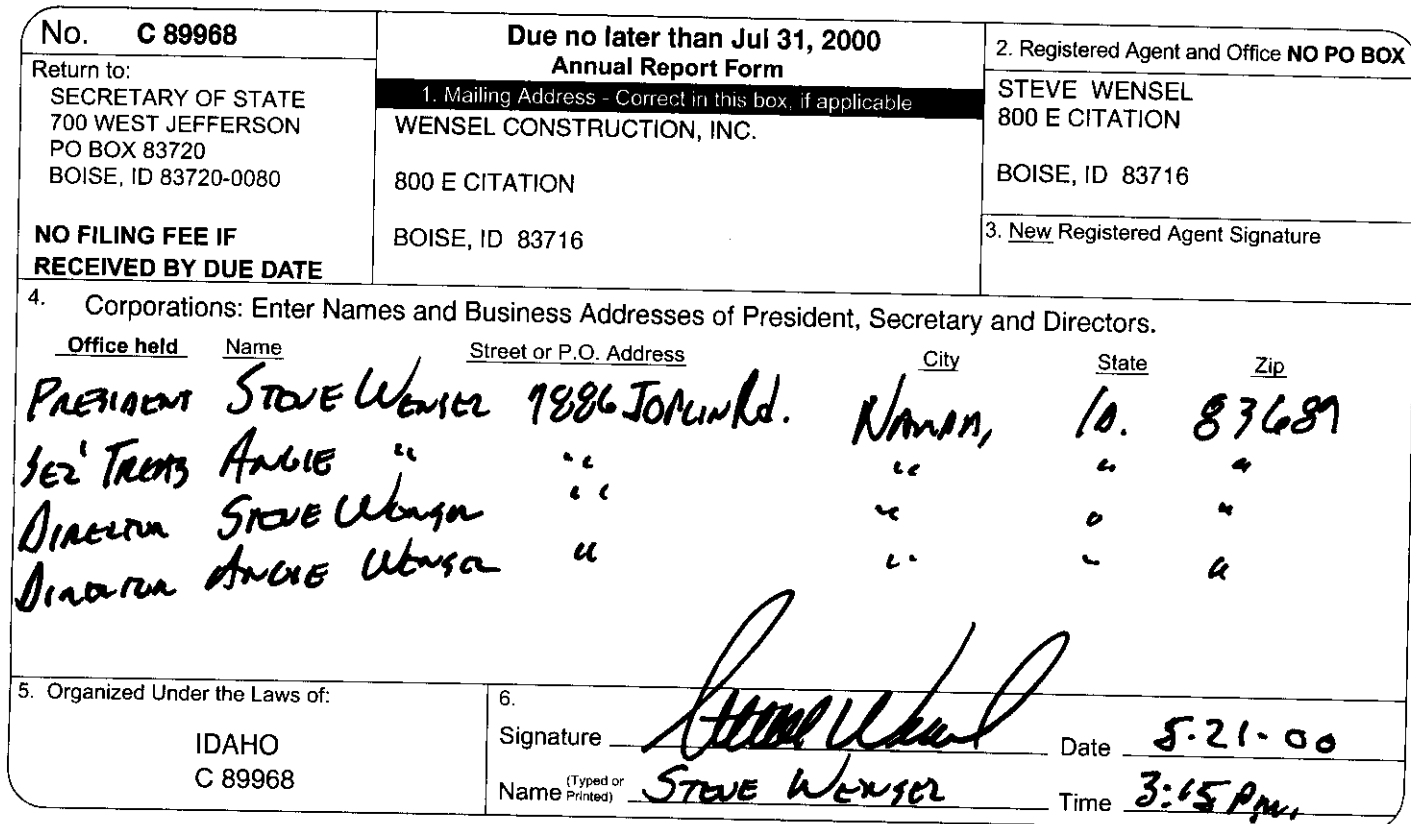 No. C 89968
Return to:
SECRETARY OF STATE
700 WEST JEFFERSON
PO BOX 83720
BOISE, ID 83720-0080
NO FILING FEE IF
RECEIVED BY DUE DATE
Due no later than Jul 31, 2000
Annual Report Form
1. Mailing Address - Correct in this box, if applicable
WENSEL CONSTRUCTION, INC.
800 E CITATION
BOISE, ID 83716
2. Registered Agent and Office NO PO BOX
STEVE WENSEL
800 E CITATION
BOISE, ID 83716
3. New Registered Agent Signature
4. Corporations: Enter Names and Business Addresses of President, Secretary and Directors.
Office held Name Street or P.O. Address City State Zip
PRESIDENT STEVE WENSEL 9886 JOPLIN Rd. NAMPA, ID. 83687
SEC' TREAS ANGIE " " " " "
DIRECTOR STEVE WENSEL " " " "
DIRECTOR ANGIE WENSEL " " " "
5. Organized Under the Laws of:
IDAHO
C 89968
6.
Signature Steve Wensel Date 5-21-00
Name (Typed or Printed) STEVE WENSEL Time 3:15 P.M.